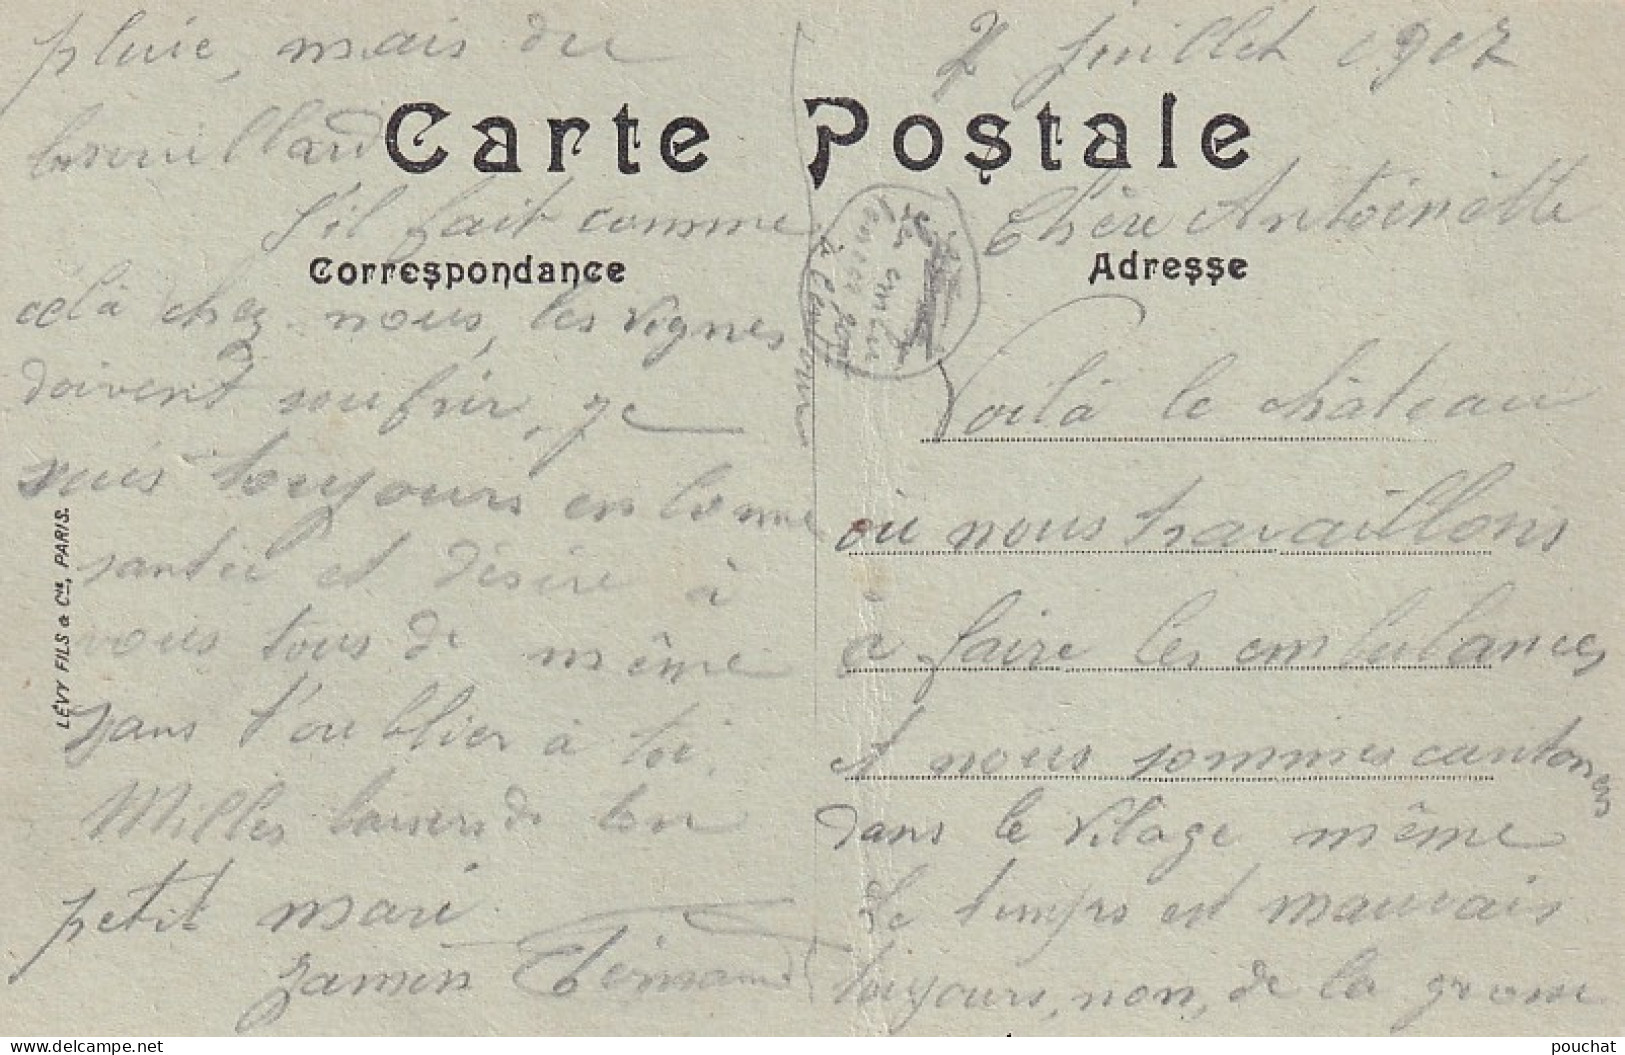 Carte Postale
Correspondance
Adresse
2 Juillet 1917
Chère Antoinètte
Voilà le château
où nous travaillons
a faire les embulances
et nous sommes cantonés
dans le vilage même
Le temps est mauvais
toujours, non, de la grosse
pluie, mais du
brouillard
S'il fait comme
celà chez nous, les vignes
doivent soufrir, je
suis toujours en bonne
santée et désire à
vous tous de même
sans t'oublier à toi.
Milles baisers de ton
petit mari
Fernand
LÉVY FILS & Cie, PARIS.
pouchat
delcampe.net